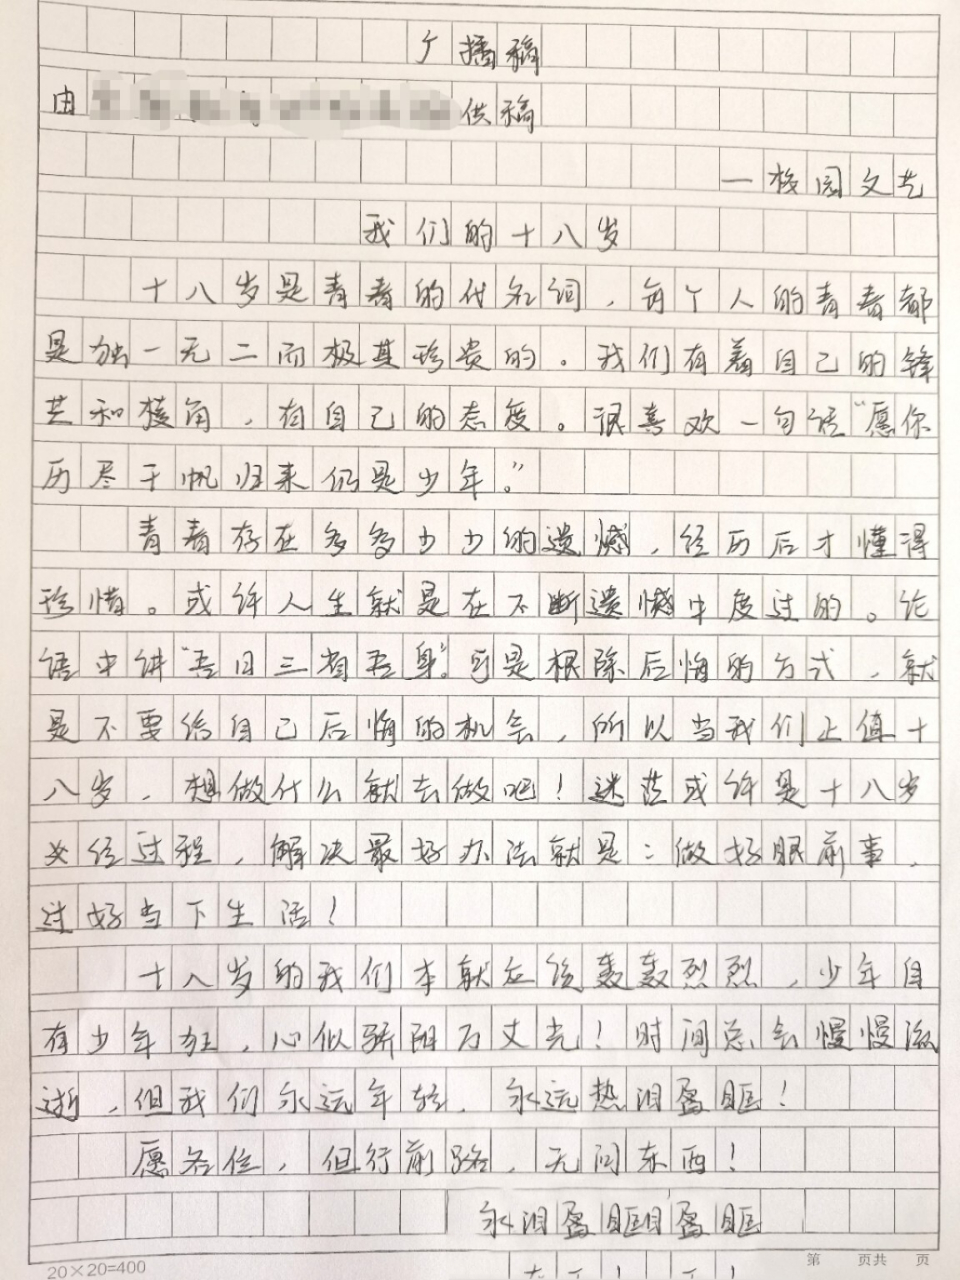 广播稿
由 供稿
一校园文艺
我们的十八岁
十八岁是青春的代名词，每个人的青春都
是独一无二而极其珍贵的。我们有着自己的锋
芒和棱角，有自己的态度。很喜欢一句话“愿你
历尽千帆归来仍是少年。”
青春存在多多少少的遗憾，经历后才懂得
珍惜。或许人生就是在不断遗憾中度过的。论
语中讲“吾日三省吾身”。可是根除后悔的方式，就
是不要给自己后悔的机会，所以当我们正值十
八岁，想做什么就去做吧！迷茫或许是十八岁
必经过程，解决最好办法就是：做好眼前事，
过好当下生活！
十八岁的我们本就应该轰轰烈烈，少年自
有少年狂，心似骄阳万丈光！时间总会慢慢流
逝，但我们永远年轻，永远热泪盈眶！
愿各位，但行前路，无问东西！
永泪盈眶泪盈眶
20×20=400
第 页共 页